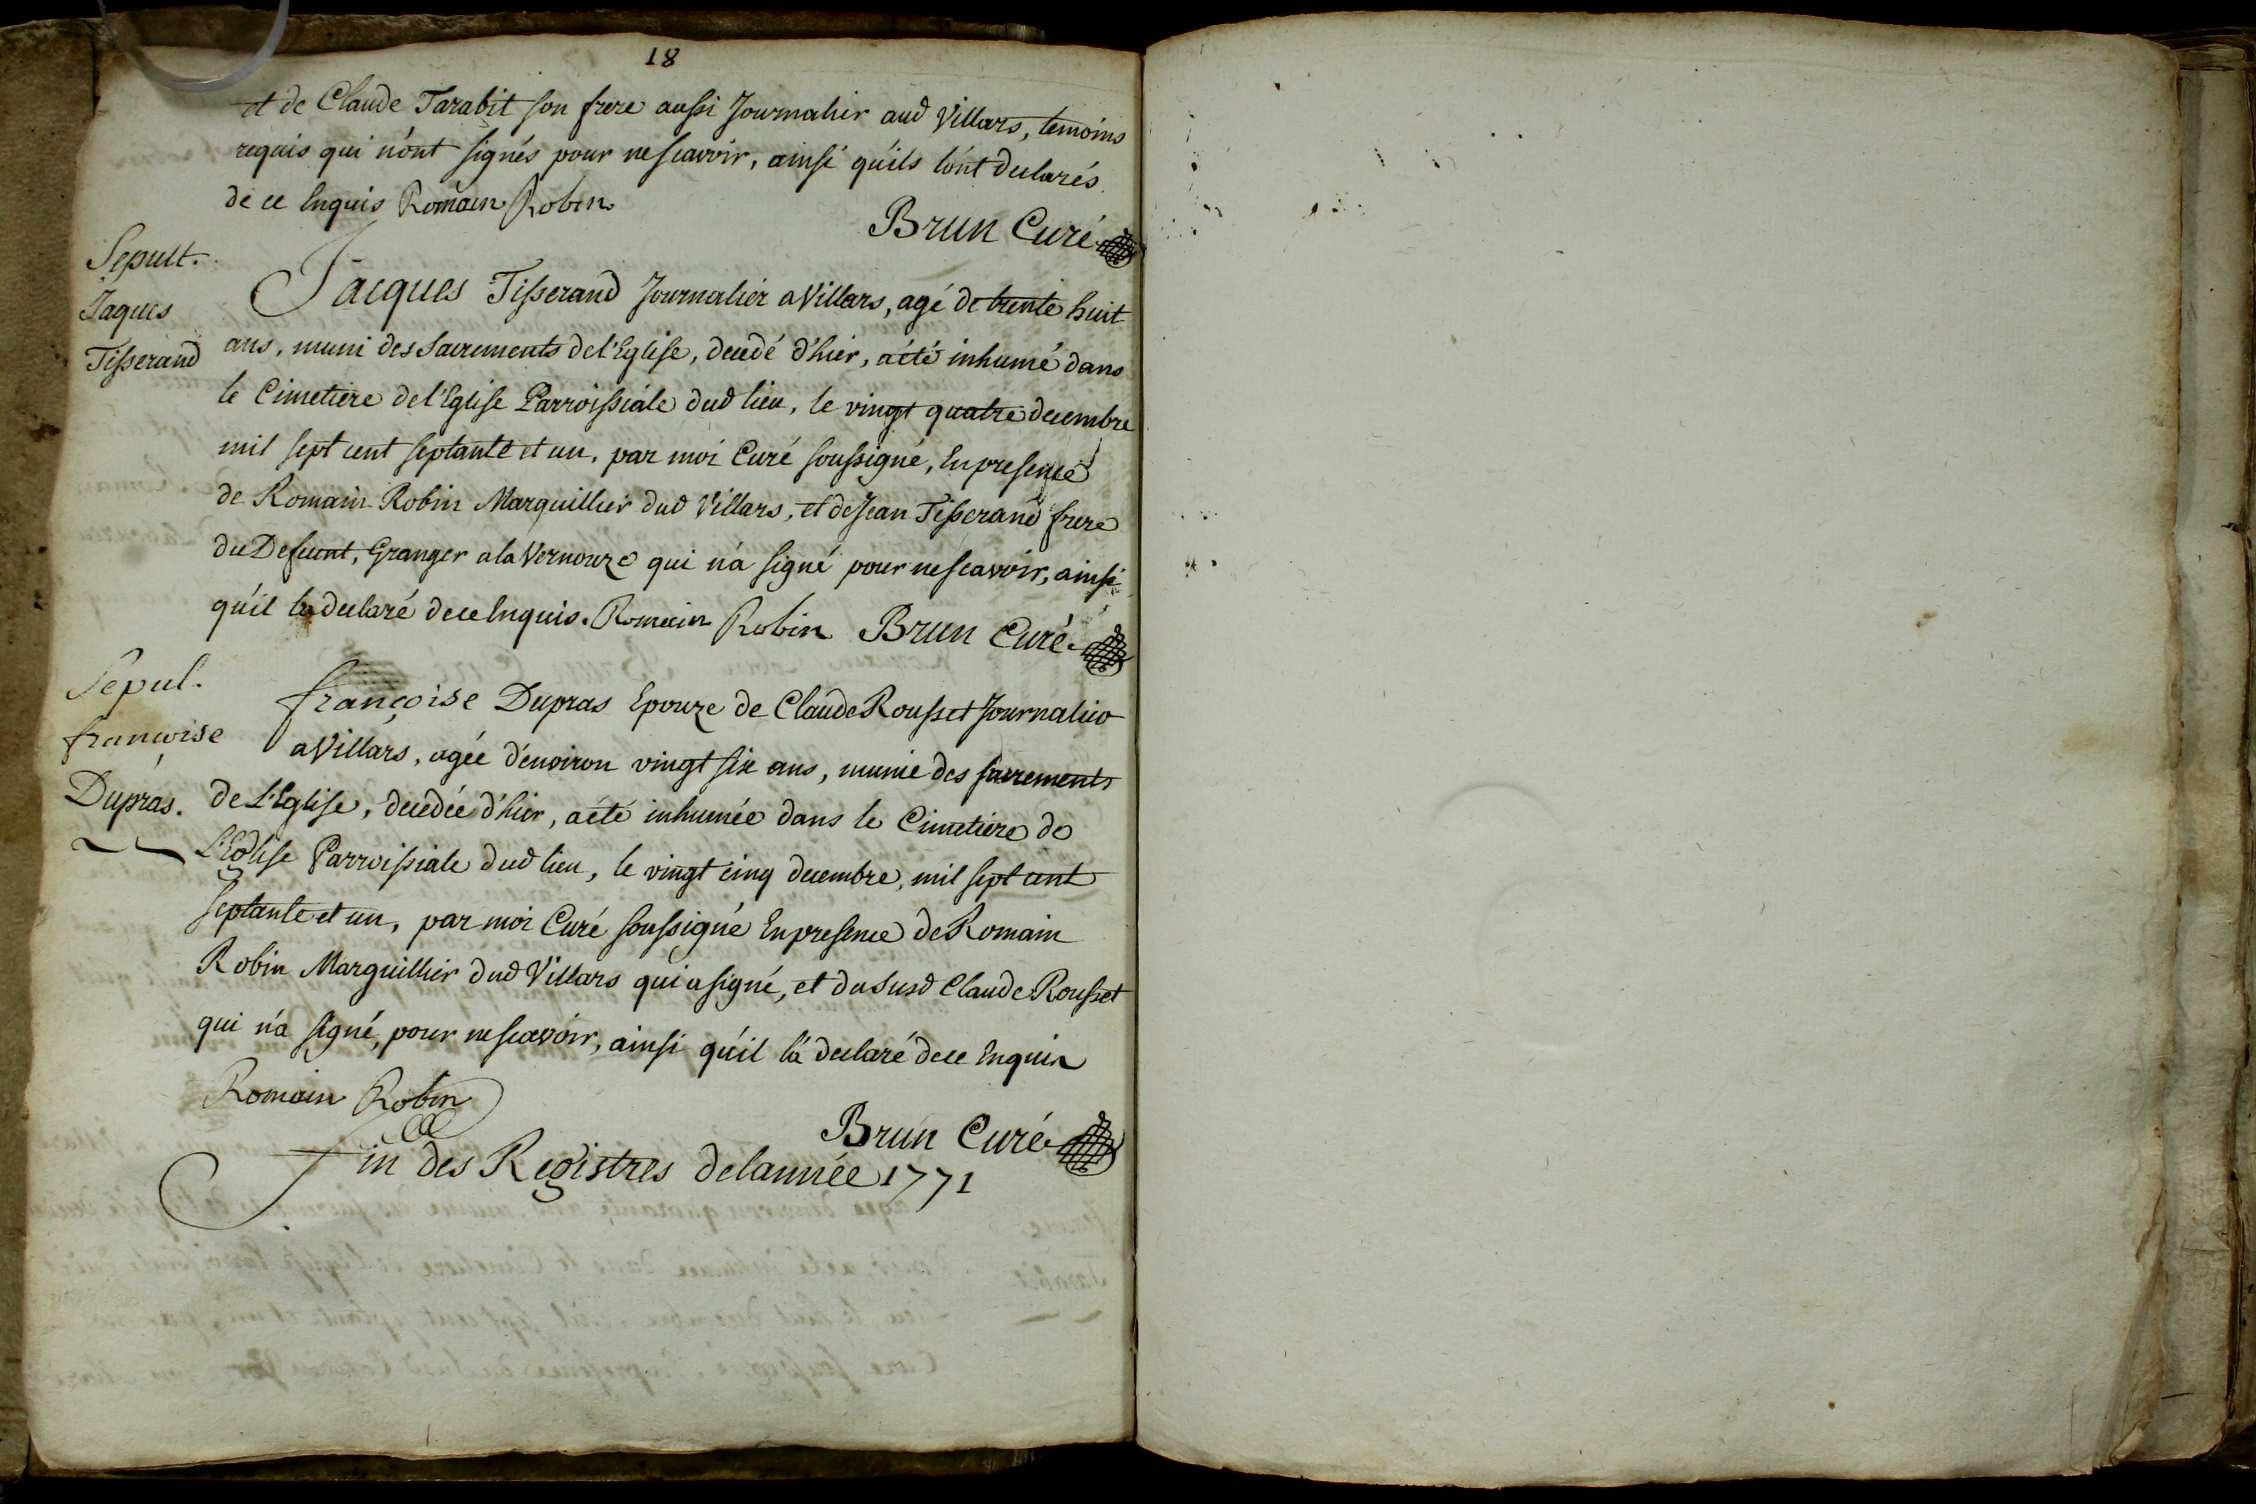 18
et de Claude Tarabit son frere aussi Journalier aud Villars, temoins
requis qui n'ont signés pour ne scavoir, ainsi qu'ils l'ont declarés
de ce Enquis Romain Robin
Brun Curé
Sepult.
Jaques
Tisserand
Jacques Tisserand Journalier a Villars, agé de trente huit
ans, muni des Sacrements de l'Eglise, decedé d'hier, a été inhumé dans
le Cimetiere de l'Eglise Parroissiale dud lieu, le vingt quatre decembre
mil sept cent septante et un, par moi Curé soussigné, En presence
de Romain Robin Marguillier dud Villars, et de Jean Tisserand frere
du Defunt, Granger a la Vernouze qui n'a signé pour ne scavoir, ainsi
qu'il la declaré de ce Enquis. Romain Robin Brun Curé
Sepul.
francoise
Dupras.
françoise Dupras Epouze de Claude Rousset Journalier
a Villars, agée d'environ vingt six ans, munie des sacrements
de L'Eglise, decedée d'hier, a été inhumée dans le Cimetiere de
L'Eglise Parroissiale dud lieu, le vingt cinq decembre, mil sept cent
septante et un, par moi Curé soussigné En presence de Romain
Robin Marguillier dud Villars qui a signé, et du susd Claude Rousset
qui n'a signé, pour ne scavoir, ainsi qu'il l'a declaré de ce Enquis
Romain Robin
Brun Curé
Fin des Registres de l'année 1771